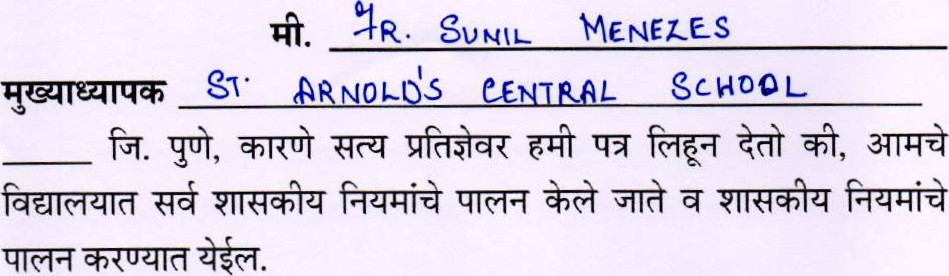 मी. FR. SUNIL MENEZES
मुख्याध्यापक ST. ARNOLD'S CENTRAL SCHOOL
_____ जि. पुणे, कारणे सत्य प्रतिज्ञेवर हमी पत्र लिहून देतो की, आमचे
विद्यालयात सर्व शासकीय नियमांचे पालन केले जाते व शासकीय नियमांचे
पालन करण्यात येईल.